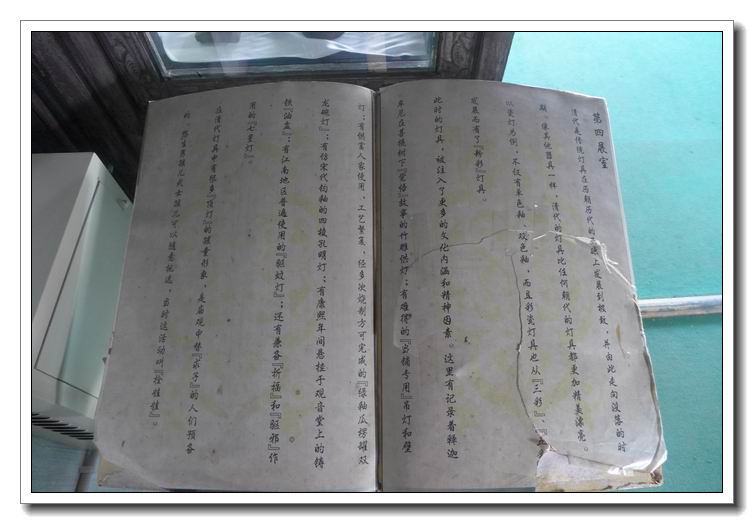 第四展室
清代是传统灯具在历朝历代的基础上发展到极致，并由此走向没落的时
期。像其他器具一样，清代的灯具比任何朝代的灯具都更加精美漂亮。
以瓷灯为例，不仅有单色釉、双色釉，而且彩瓷灯具也从『三彩』、『五彩
发展而有了『粉彩』灯具。
此时的灯具，被注入了更多的文化内涵和精神因素。这里有记录着释迦
牟尼在菩提树下『觉悟』故事的竹雕供灯；有难得的『当铺专用』吊灯和壁
灯；有供富人家使用、工艺繁复，经多次烧制方可完成的『绿釉瓜楞罐双
龙碗灯』；有仿宋代钧釉的四棱孔明灯；有康熙年间悬挂于观音堂上的铸
铁『油盏』；有江南地区普遍使用的『驱蚊灯』；还有兼备『祈福』和『驱邪』作
用的『七星灯』。
在清代灯具中有很多『顶灯』的孩童形象，是庙观中替『求子』的人们预备
的。想生男孩儿或女孩儿可以随意挑选，当时这活动叫『拴娃娃』。